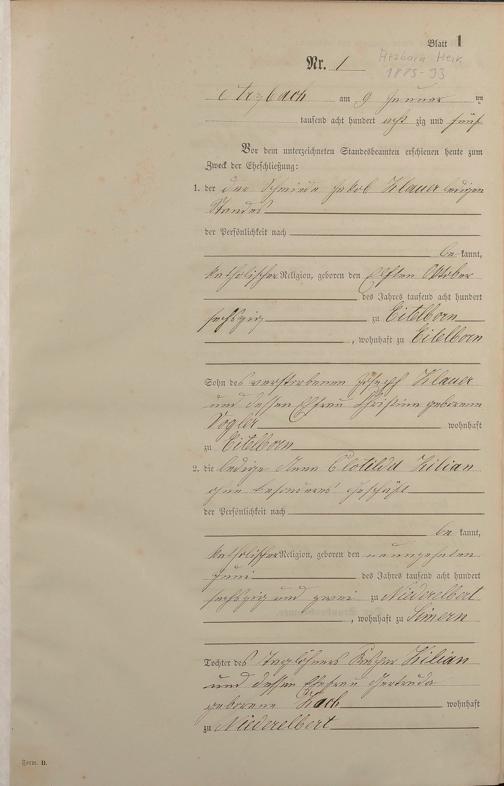 Blatt 1
Arzbach Heir
1885-93
Nr. 1
Arzbach am 9 Januar
tausend acht hundert acht zig und fünf
Vor dem unterzeichneten Standesbeamten erschienen heute zum
Zweck der Eheschließung:
1. der der Schmied Jakob Klauer ledigen
Standes
der Persönlichkeit nach
be kannt,
katholischer Religion, geboren den Elften Oktober
des Jahres tausend acht hundert
sechszig zu Eitelborn
, wohnhaft zu Eitelborn
Sohn des verstorbenen Joseph Klauer
und dessen Ehefrau Christine geborene
Vogler wohnhaft
zu Eitelborn
2. die ledige Anna Clotilda Kilian
ohne besonderes Geschäft
der Persönlichkeit nach
be kannt,
katholischer Religion, geboren den neunzehnten
Juni des Jahres tausend acht hundert
sechszig und zwei zu Niederelbert
, wohnhaft zu Simern
Tochter des Taglöhners Kilian
und dessen Ehefrau Gertruda
geborene Hach wohnhaft
zu Niederelbert
Form. B.